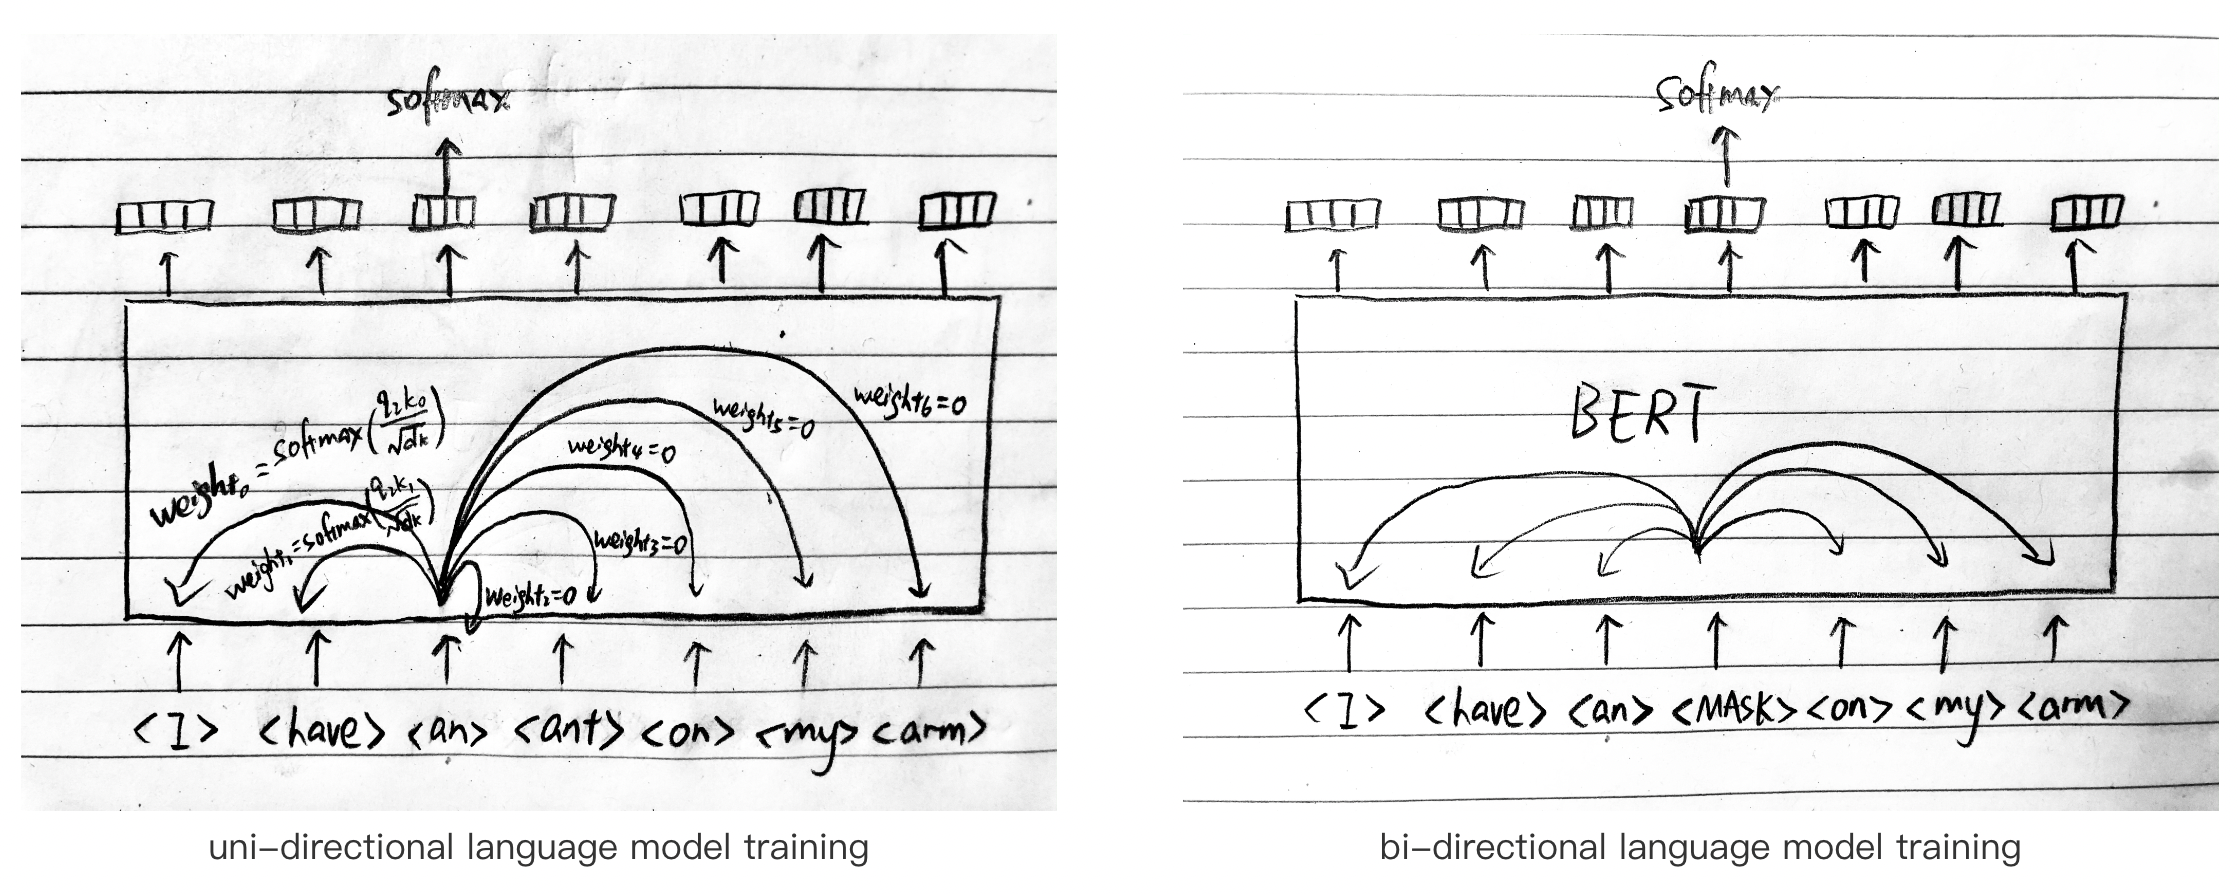 softmax
weight₀ = softmax(q₂k₀/√dk)
weight₁ = softmax(q₂k₁/√dk)
weight₂=0
weight₃=0
weight₄=0
weight₅=0
weight₆=0
<I> <have> <an> <ant> <on> <my> <arm>
uni-directional language model training
softmax
BERT
<I> <have> <an> <MASK> <on> <my> <arm>
bi-directional language model training